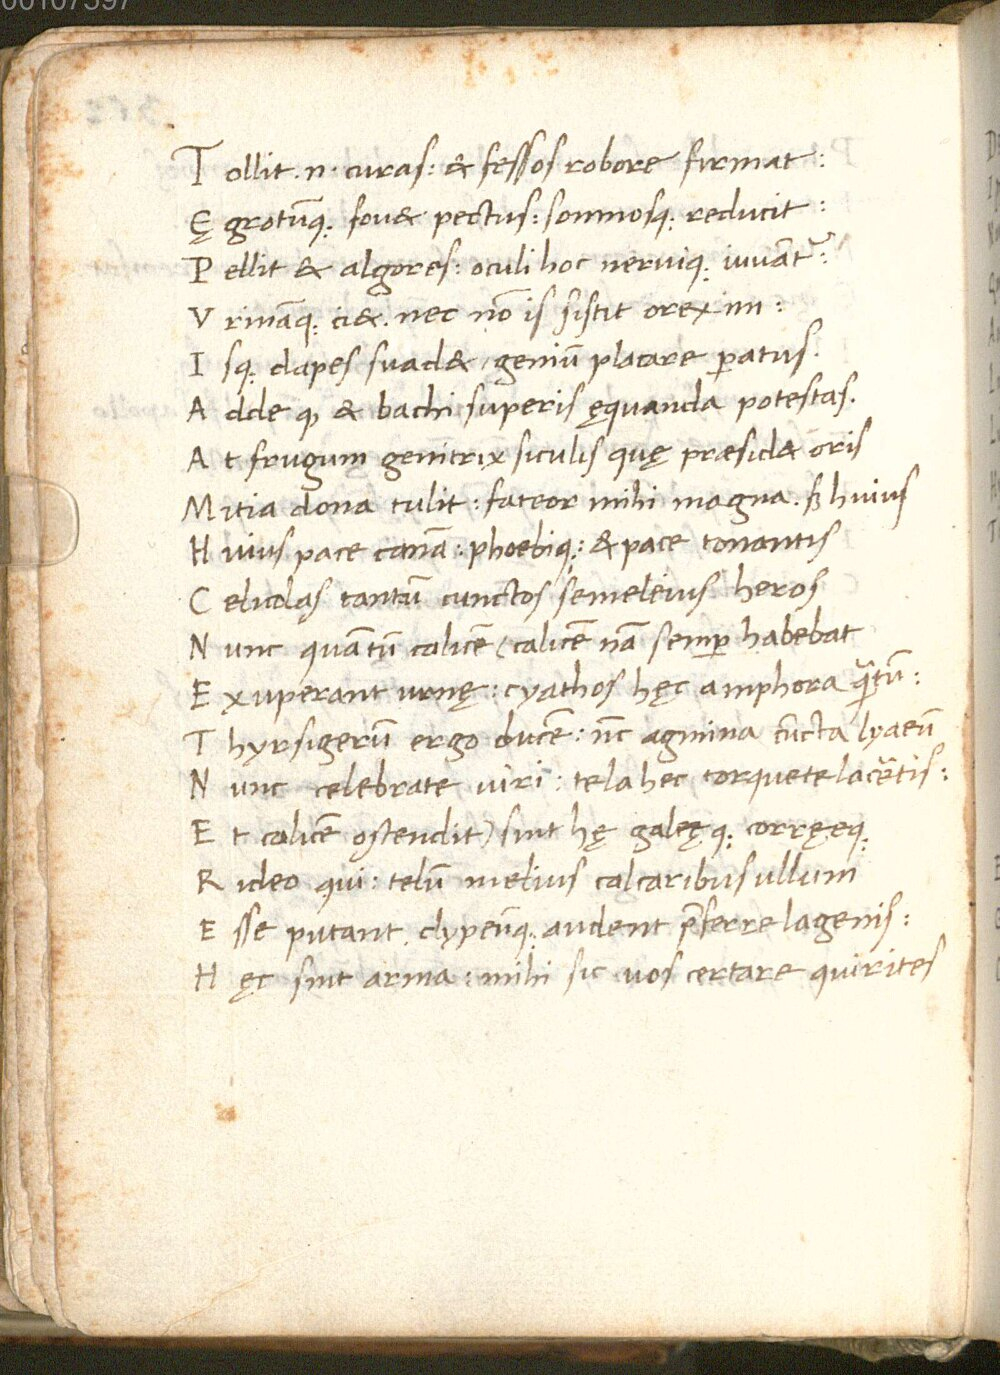 00107397
Tollit .n. curas: & fessos robore firmat:
Ęgrotūq. fou& pectus: somnosq. reducit:
Pellit & algores: oculi hoc neruiq. iuuāt᷑:
Vrināq. ci&. nec nō is sistit orexim:
Isq. dapes suad& geniū placare ꝑatus.
Adde ꝙ & bachi superis ęquanda potestas.
At frugum genitrix siculis quę præsid& oris
Mitia dona tulit: fateor mihi magna. sꝫ huius
Huius pace canā: phoebiq.: & pace tonantis
Celicolas tantū cunctos semeleius heros
Nunc quātū calicē (calicē nā semꝑ habebat
Exuperant urnę: cyathos hęc amphora q̄tū:
Thyrsigerū ergo ducē: nc̄ agmina cūcta lyaeū
Nunc celebrate uiri: tela hec torquete lacētis:
Et calicē ostendit) sint hę galeę q. corręeq.
Rideo qui: telū melius calcaribus ullum
Esse putant. clypeūq. audent p̄ferre lagenis:
Hęc sint arma: mihi sic uos certare quirites